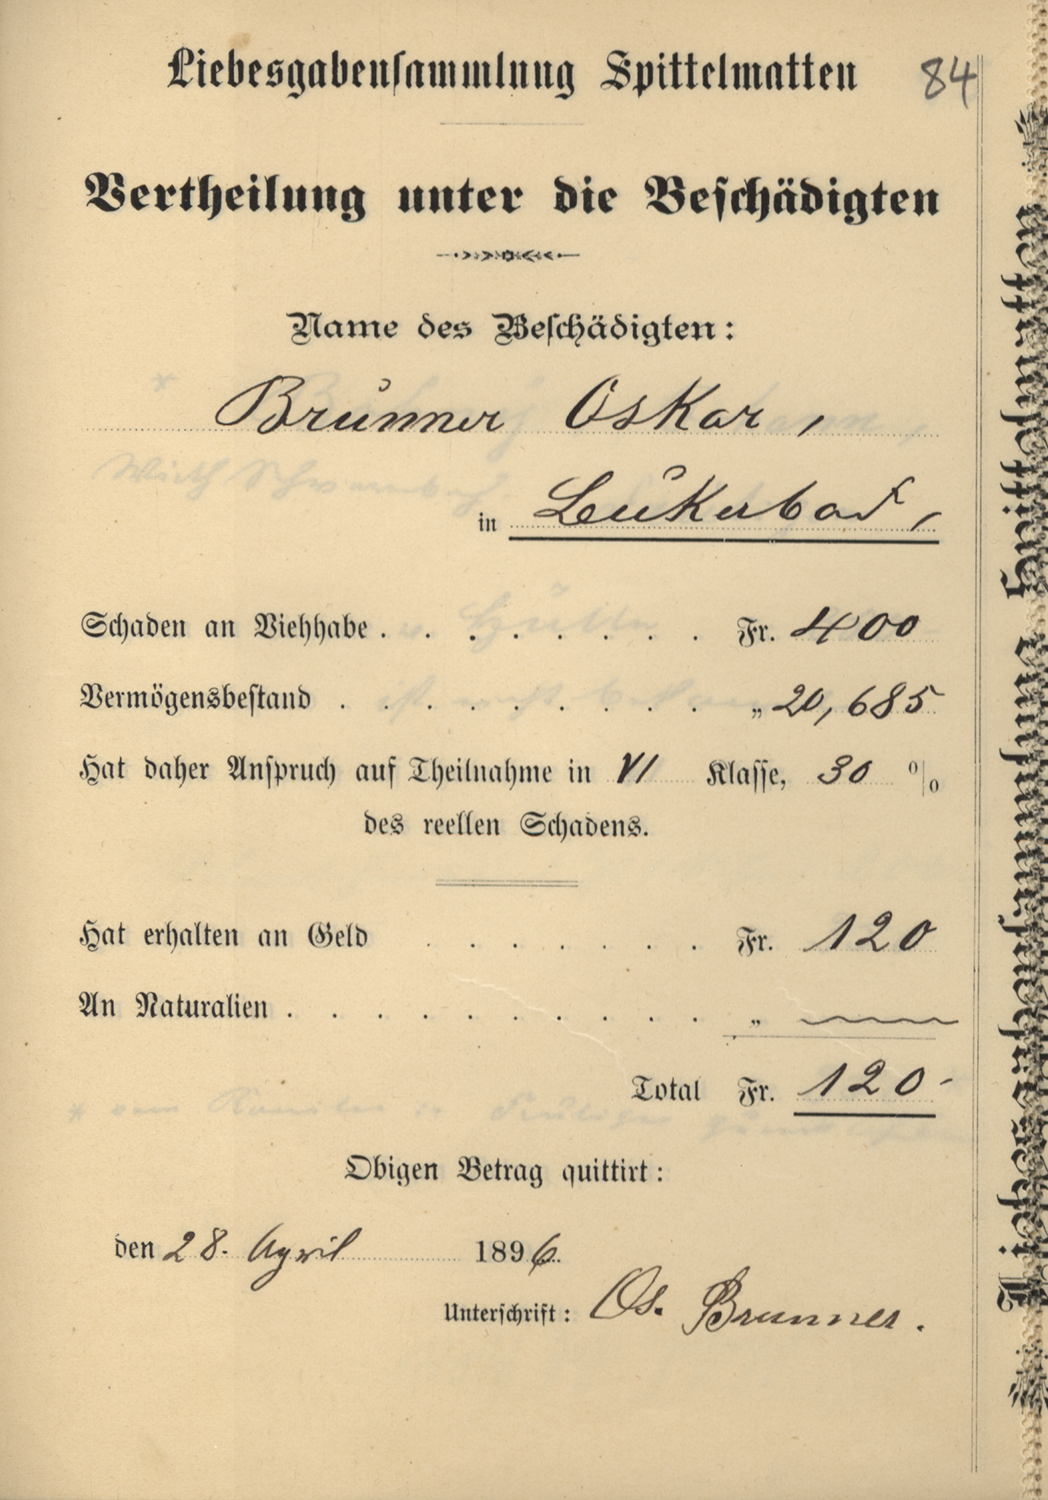 Liebesgabensammlung Spittelmatten
84
Vertheilung unter die Beschädigten
Name des Beschädigten:
Brunner Oskar,
in Leukerbad,
Schaden an Viehhabe . . . . . . . . Fr. 400
Vermögensbestand . . . . . . . . . „ 20,685
Hat daher Anspruch auf Theilnahme in VI Klasse, 30 %
des reellen Schadens.
Hat erhalten an Geld . . . . . . . Fr. 120
An Naturalien . . . . . . . . . . „ —
Total Fr. 120-
Obigen Betrag quittirt:
den 28. April 1896.
Unterschrift: Os. Brunner.
Liebesgabensammlung Spittelmatten